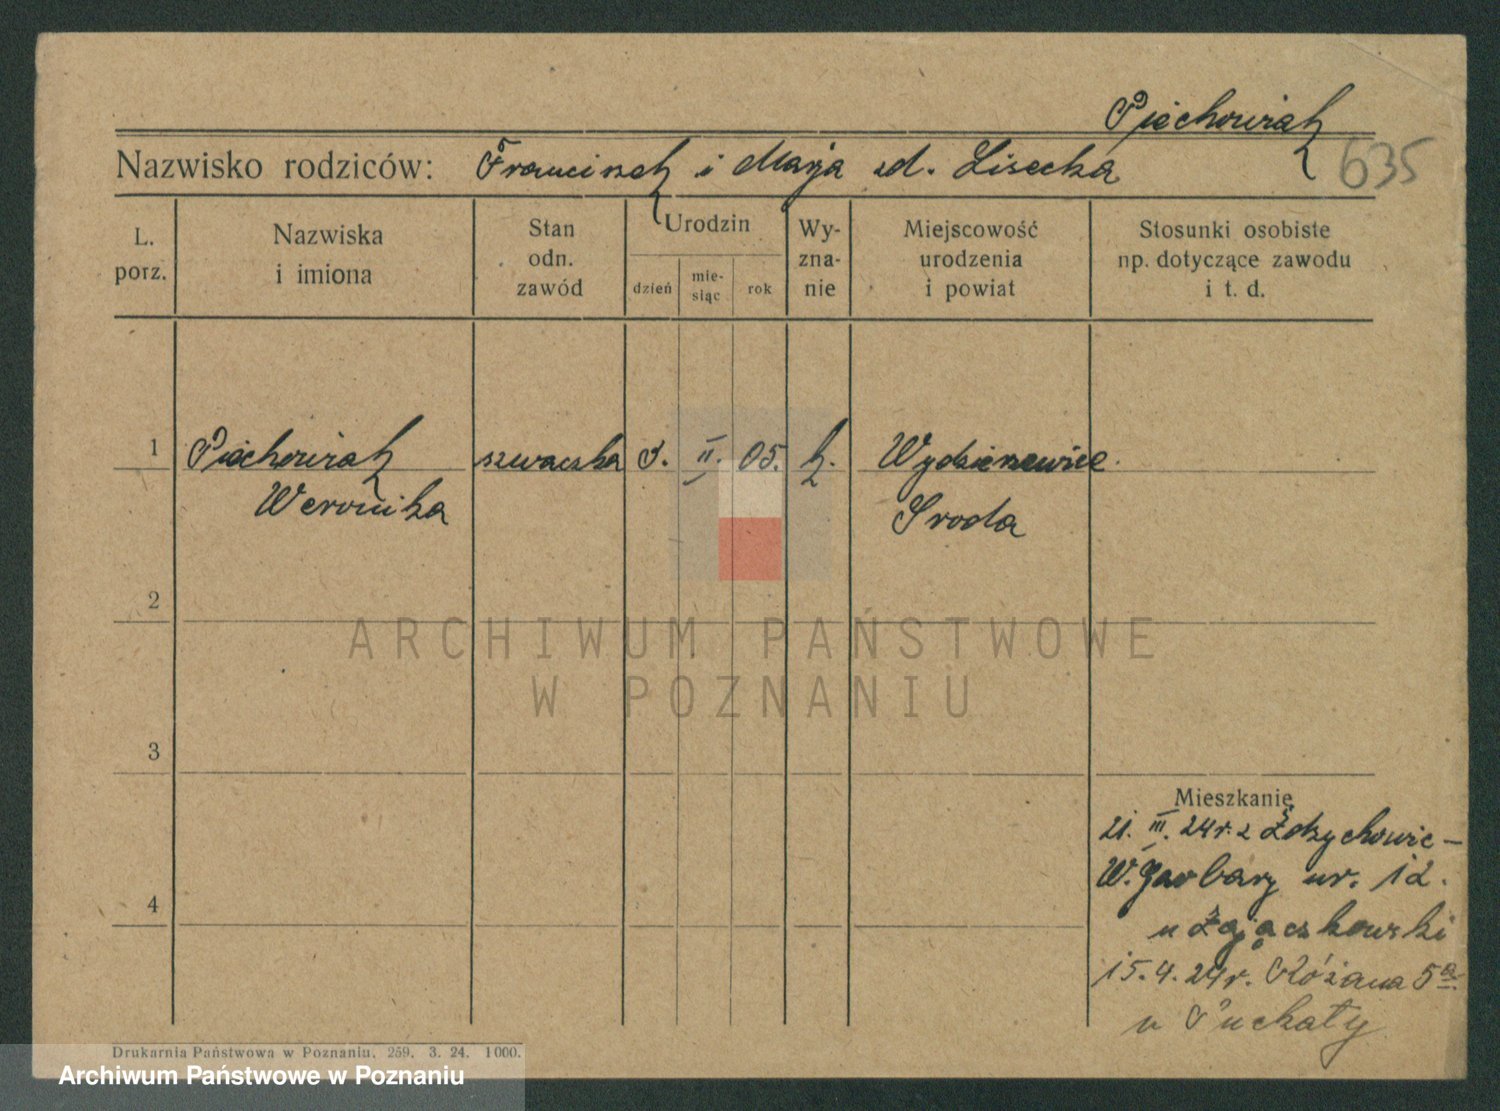 Piechowiak
Nazwisko rodziców: Franciszek i Marja zd. Lisecka 635
L. porz.
Nazwiska i imiona
Stan odn. zawód
Urodzin
dzień
mie-siąc
rok
Wy-zna-nie
Miejscowość urodzenia i powiat
Stosunki osobiste np. dotyczące zawodu i t. d.
1 Piechowiak szwaczka II. 05. k.
Weronika Sroda
2
ARCHIWUM PAŃSTWOWE
W POZNANIU
3
4
Mieszkanie
21. III. 24 r. z
W. Garbary nr. 12.
u Zajączkowski
15. 4. 24 r. Różana 5a
u Puchały
Drukarnia Państwowa w Poznaniu. 259. 3. 24. 1000.
Archiwum Państwowe w Poznaniu